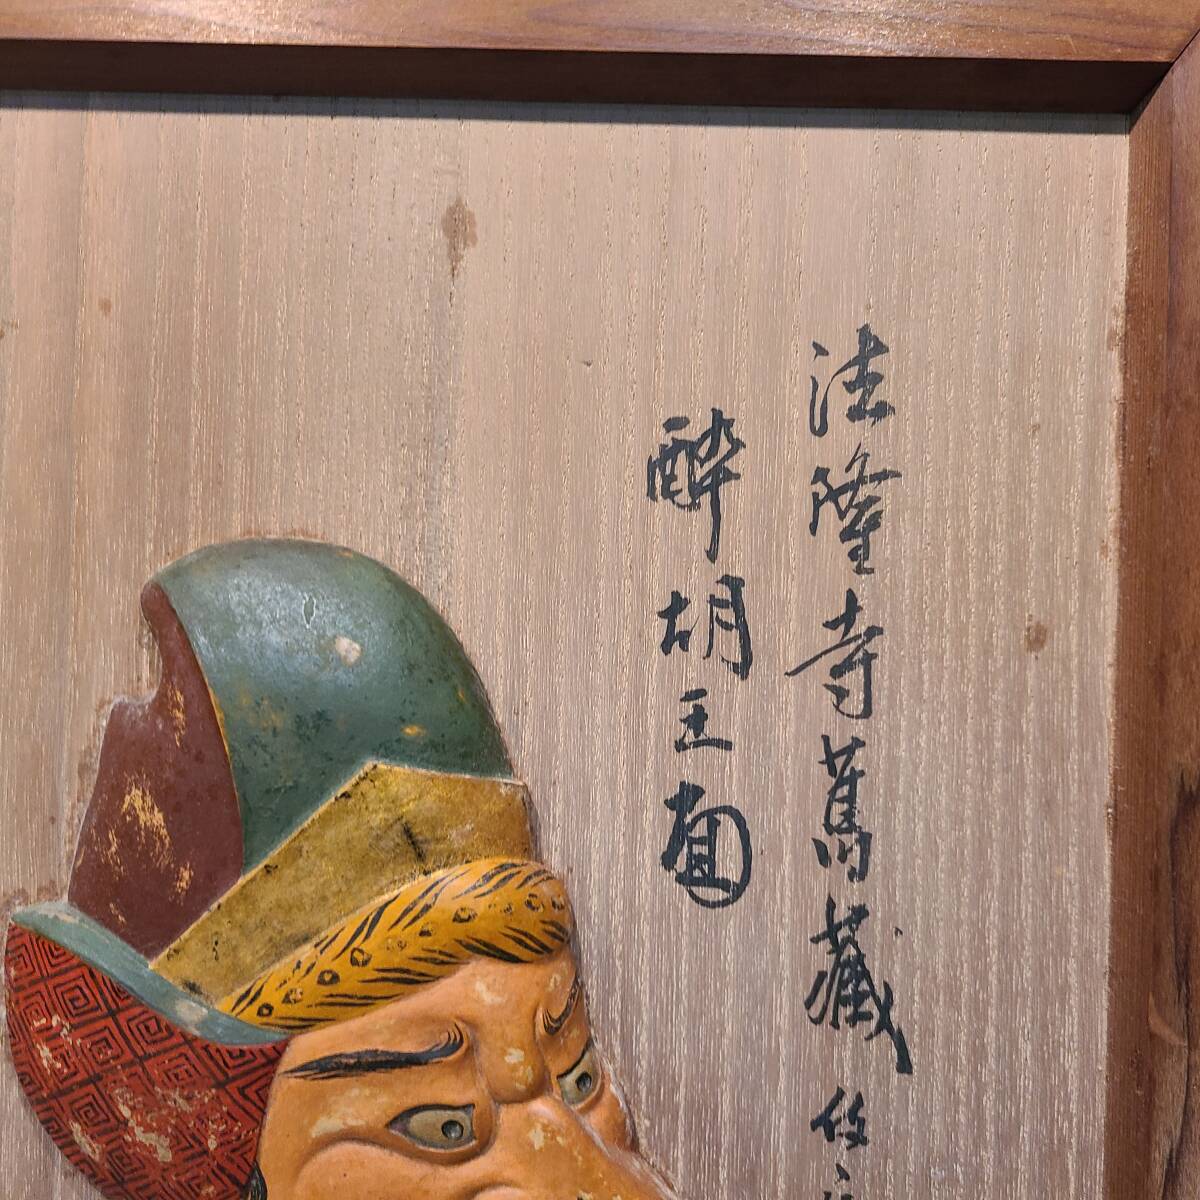 法隆寺舊藏
酔胡王面